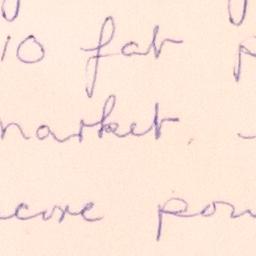 10 fat p
market. -
core pou